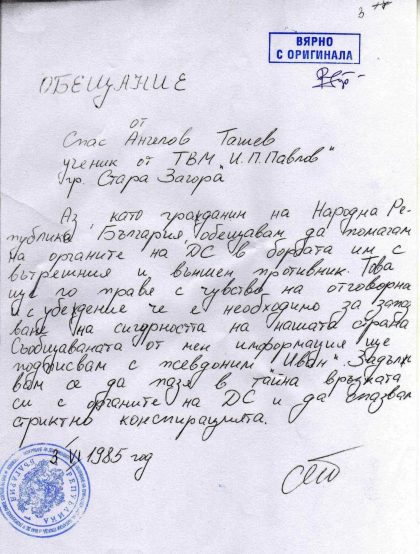 3
ВЯРНО
С ОРИГИНАЛА
ОБЕЩАНИЕ
от
Спас Ангелов Ташев
ученик от ТВМ "И.П.Павлов"
гр. Стара Загора
Аз като гражданин на Народна Ре-
публика България обещавам да помагам
на органите на ДС в борбата им с
вътрешния и външен противник. Това
ще го правя с чувство на отговорно
и с убеждение че е необходимо за запа
ване на сигурността на нашата страна.
Съобщаваната от мен информация ще
подписвам с псевдоним "Иван". Задълж
вам се да пазя в тайна връзката
си с органите на ДС и да спазвам
стриктно конспирацията.
3 VI 1985 год
РЕПУБЛИКА БЪЛГАРИЯ